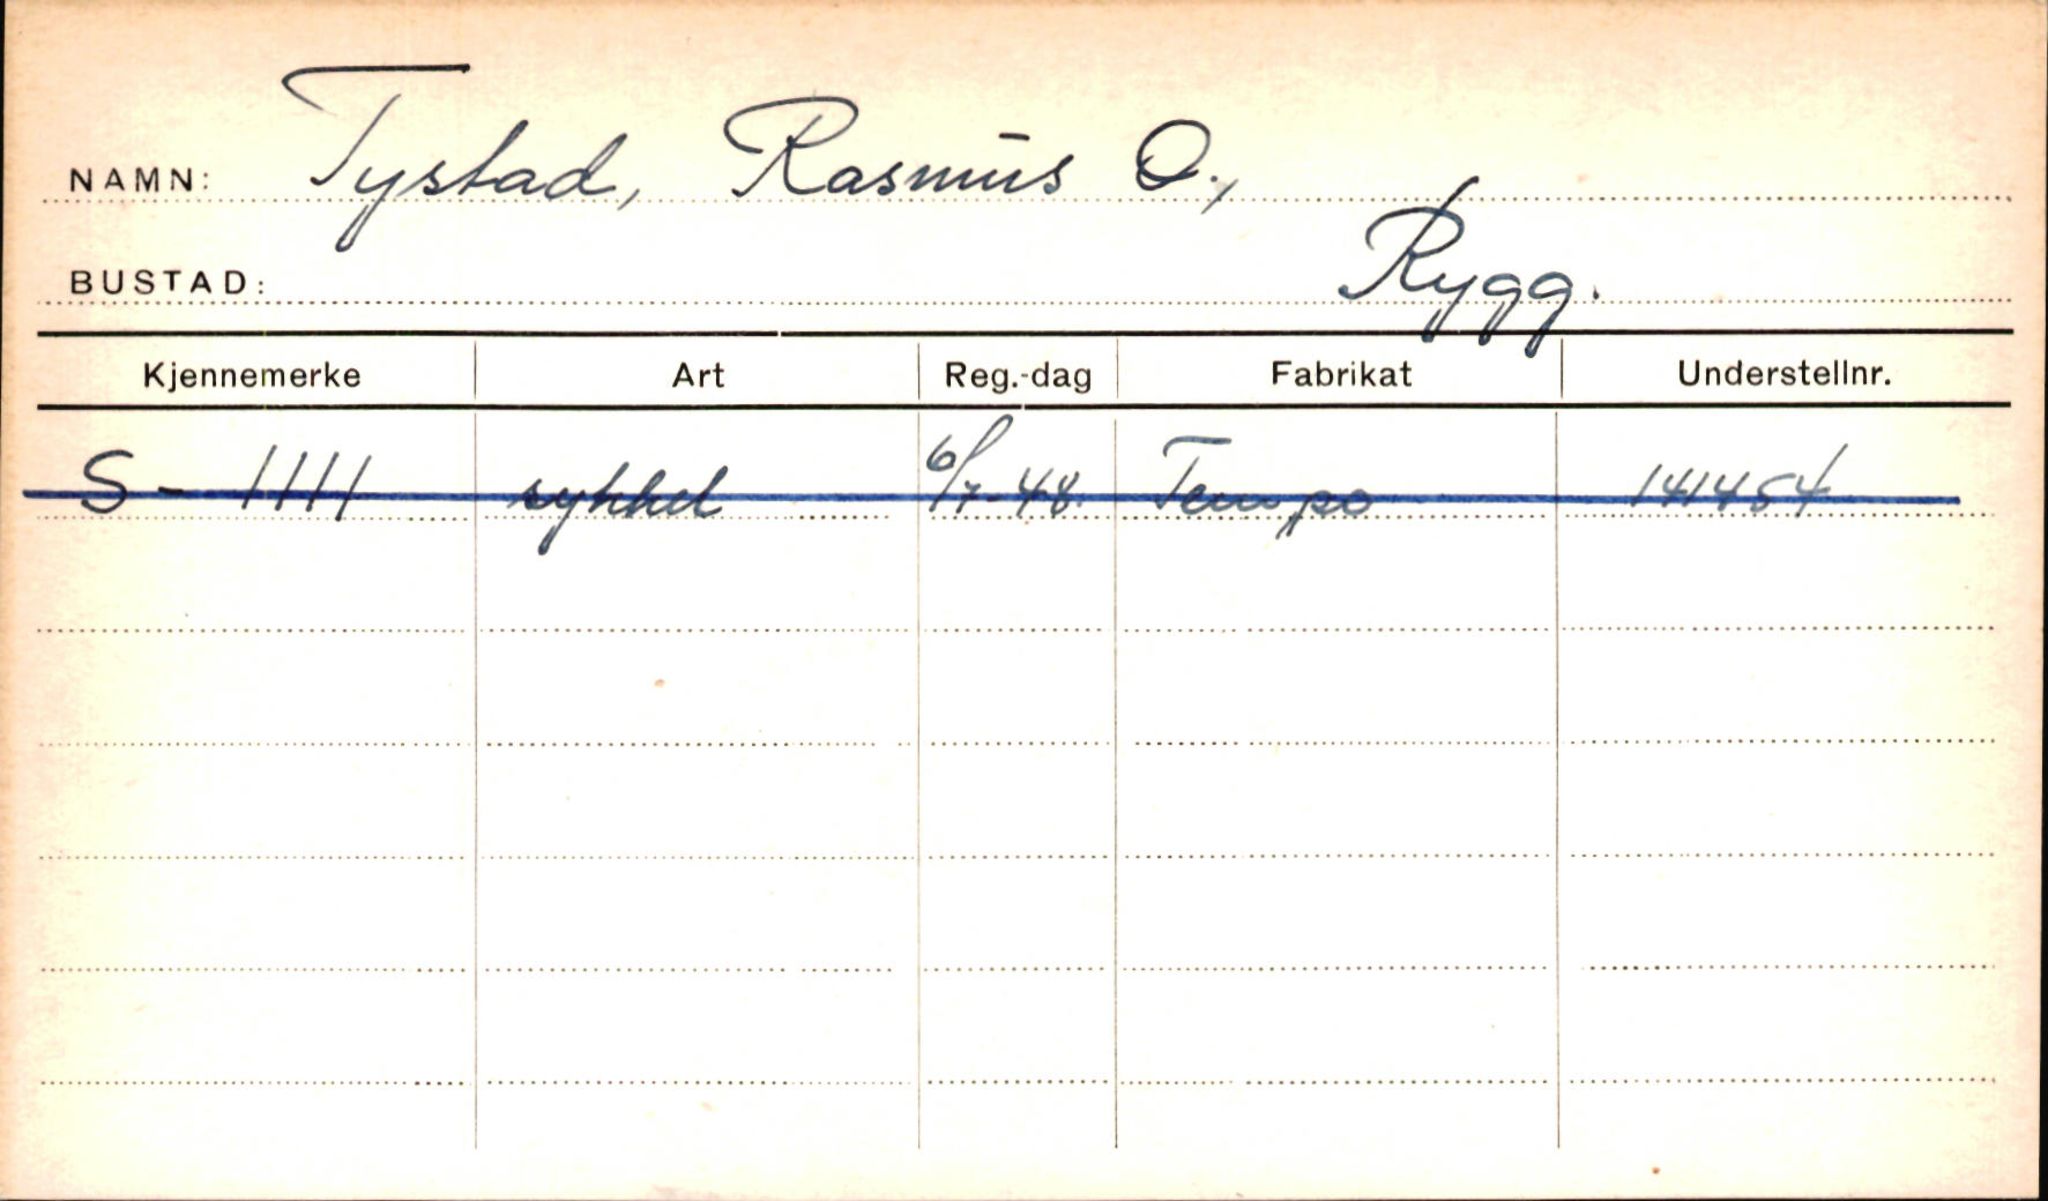 NAMN: Tystad, Rasmus O.,
BUSTAD: Rygg.
Kjennemerke Art Reg.-dag Fabrikat Understellnr.
S - 1111 sykkel 6/7-48. Tempo 141454